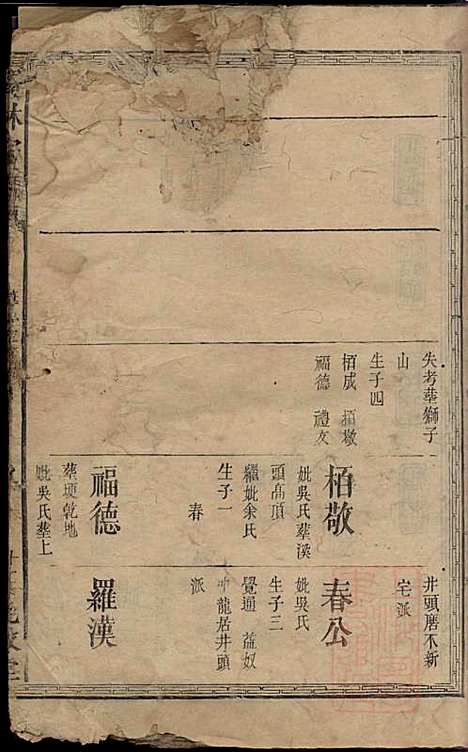 失考葬獅子
山
生子四
栢成 栢敬
福德 禮友
栢敬
妣吳氏葬溪
頭髙頂
繼妣余氏
生子一
春
福德
葬塘乾地
妣吳氏葬上
井頭磨不新
宅派
春公
妣吳氏
生子三
覺通 益奴
冲龍居井頭
派
羅漢
林